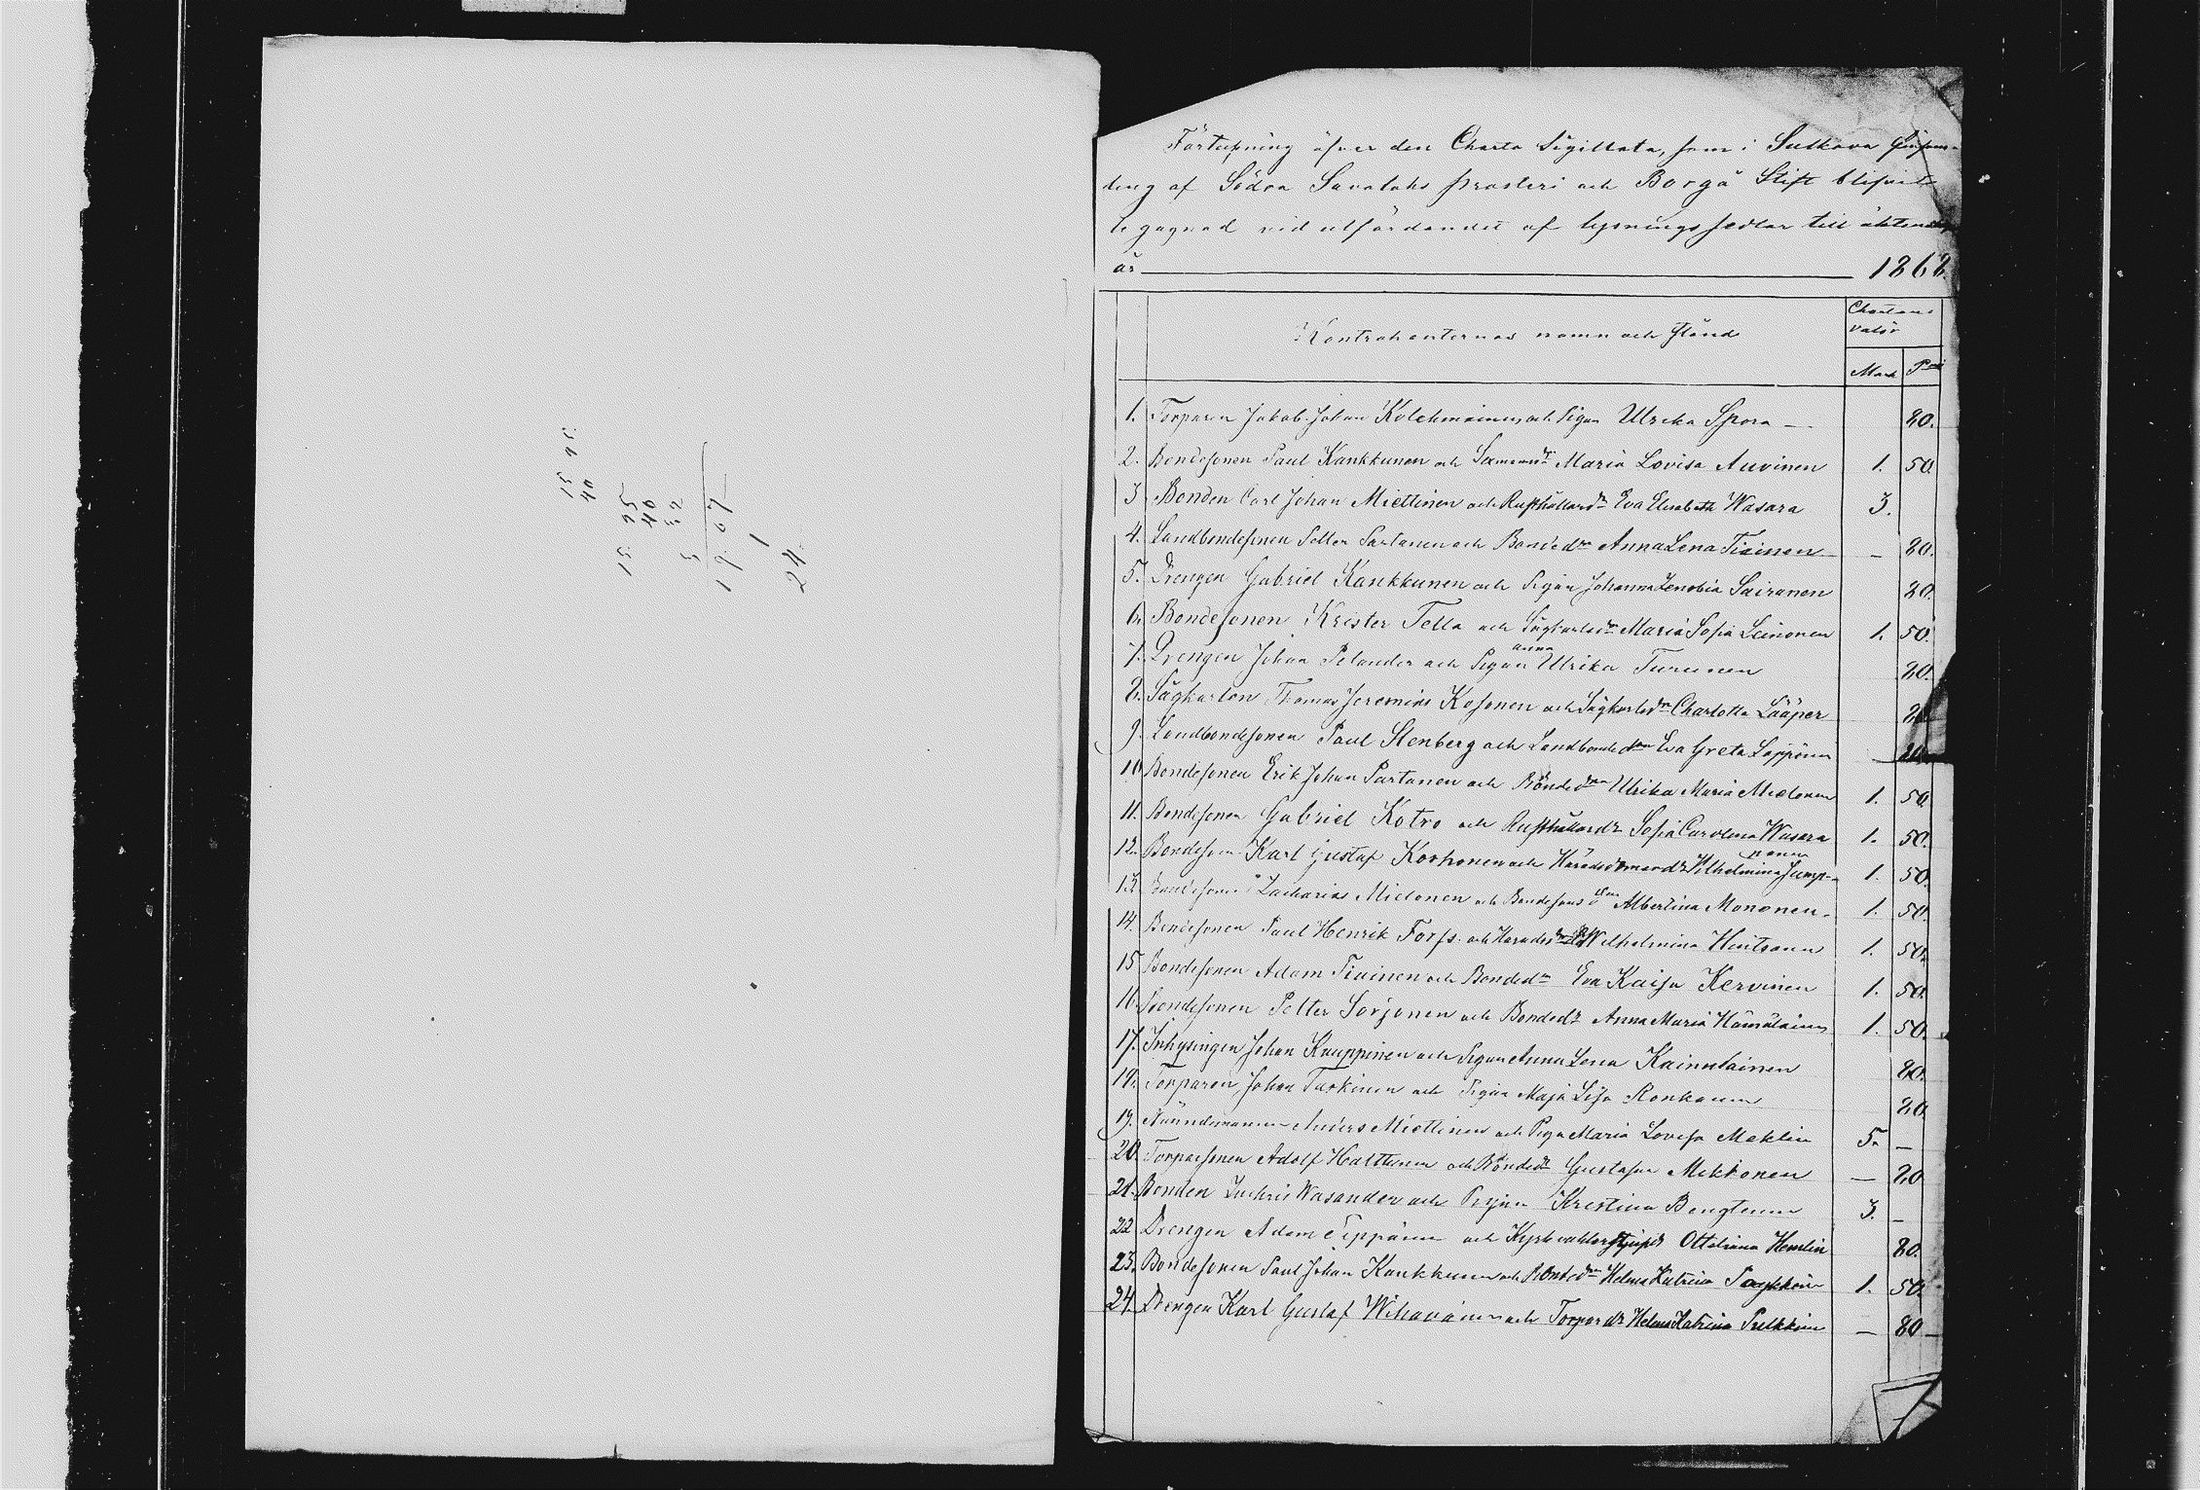 Förteckning öfver den Charta Sigillata, som i Sulkava Försam-
ling af Södra Savolaks prosteri och Borgå Stift blifvit
begagnad vid utfärdandet af lysningssedlar till äktenskap
år 1868.
Kontrahenternas namn och stånd
Chartans valör
Mark Pni
1. Torparen Jakob Johan Kolehmainen och Pigan Ulrika Spora 80.
2. Bondesonen Paul Kankkunen och Maria Lovisa Auvinen 1. 50.
3 Bonden Carl Johan Miettinen och Rusthållaredr Eva Elisabeth Wasara 3.
4. Landbondesonen Petter Partanen och Bondedr Anna Lena Tiainen – 80.
5. Drengen Gabriel Kankkunen och Pigan Johanna Zenobia Sairanen 80.
6. Bondesonen Krister Tella och Sågkarlsdr Maria Sofia Leinonen 1. 50.
7. Drengen Johan Pelander och Pigan Anna Ulrika Turunen 80.
8. Sågkarlen Thomas Jeremias Kosonen och Sågkarlsdr Charlotta Lääper 80
9. Landbondesonen Paul Stenberg och Landbondedr Eva Greta Loppönen 80.
10 Bondesonen Erik Johan Partanen och Bondedr Ulrika Maria Mielonen 1. 50.
11. Bondesonen Gabriel Kotro och Rusthållaredr Sofia Carolina Wasara 1. 50.
12. Bondesonen Karl Gustaf Korhonen och Häradsdomaredr Wilhelmina Jumppanen 1. 50.
13. Bondesonen Zacharias Mielonen och Bondesonsdr Albertina Mononen 1. 50.
14. Bondesonen Paul Henrik Forss och Wilhelmina Huitsanen 1. 50.
15 Bondesonen Adam Tiainen och Bondedr Eva Kaisa Kervinen 1. 50.
16. Bondesonen Petter Sorjonen och Bondedr Anna Maria Hämäläinen 1. 50.
17. Inhysingen Johan Kauppinen och Pigan Anna Lena Kainulainen 80.
18. Torparen Johan Tarkinen och Pigan Maja Lisa Ronkanen 80.
19. Nämndemannen Anders Miettinen och Pigan Maria Lovisa Meklin 5. –
20. Torparsonen Adolf Halttunen och Bondedr Gustafva Mikkonen – 80
21. Bonden Zachris Wasander och Pigan Kristina Bengtsson 3. –
22 Drengen Adam Tippanen och Ottiliana Hemlin 80.
23. Bondesonen Paul Johan Kankkunen och Bondedr Helena Katrina 1. 50.
24. Drengen Karl Gustaf Wihavainen och Torparedr Helena Katrina Pulkkinen – 80